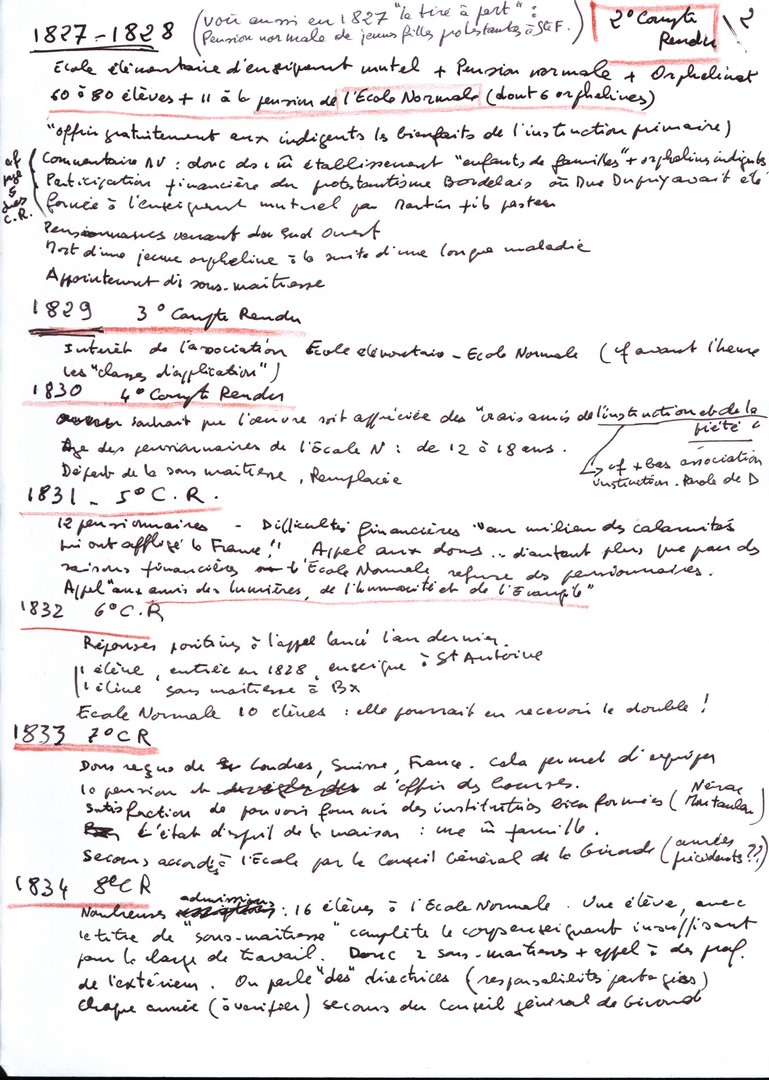 1827-1828 (voir aussi en 1827 "le tiré à part" :
Pension normale de jeunes filles protestantes à Ste F.)
2° Compte Rendu
2
Ecole élémentaire d'enseignement mutuel + Pension normale + Orphelinat
60 à 80 élèves + 11 à la pension de l'Ecole Normale (dont 6 orphelines)
"offrir gratuitement aux indigents les bienfaits de l'instruction primaire)
Commentaire NV : donc ds 1 m̂ établissement "enfants de familles" + orphelins indigents
Participation financière du protestantisme Bordelais où Mme Dupuy avait été
formée à l'enseignement mutuel par Martin fils pasteur
C.R.
Pensionnaires venant du Sud Ouest
Mort d'une jeune orpheline à la suite d'une longue maladie
Appointement d'1 sous-maîtresse
1829 3° Compte Rendu
Intérêt de l'association Ecole élémentaire - Ecole Normale (cf avant l'heure
les "classes d'application")
1830 4° Compte Rendu
souhait que l'œuvre soit appréciée des "vrais amis de l'instruction et de la
piété"
Age des pensionnaires de l'Ecole N : de 12 à 18 ans.
cf + bas association
instruction. Role de D
Départ de la sous maîtresse, Remplacée
1831 - 5° C.R.
12 pensionnaires - Difficultés financières "au milieu des calamités
qui ont affligé la France". Appel aux dons... d'autant plus que par des
raisons financières l'Ecole Normale refuse des pensionnaires.
Appel "aux amis des lumières, de l'humanité et de l'Evangile"
1832 6° C.R
Réponses positives à l'appel lancé l'an dernier.
1 élève, entrée en 1828, enseigne à St Antoine
1 élève sous maîtresse à Bx
Ecole Normale 10 élèves : elle pourrait en recevoir le double !
1833 7° CR
Dons reçus de Londres, Suisse, France. Cela permet d'équiper
la pension et d'offrir des bourses.
Satisfaction de pouvoir fournir des institutrices bien formées (Nérac
Montauban)
L'état d'esprit de la maison : une m̂ famille.
Secours accordés à l'Ecole par le Conseil Général de la Gironde (années
précédents ??)
1834 8e CR
Nombreuses admissions : 16 élèves à l'Ecole Normale. Une élève, avec
le titre de "sous-maîtresse" complète le corps enseignant insuffisant
pour la charge de travail. Donc 2 sous-maîtresses + appel à des prof.
de l'extérieur. On parle "des" directrices (responsabilités partagées)
chaque année (à vérifier) secours du Conseil général de Gironde